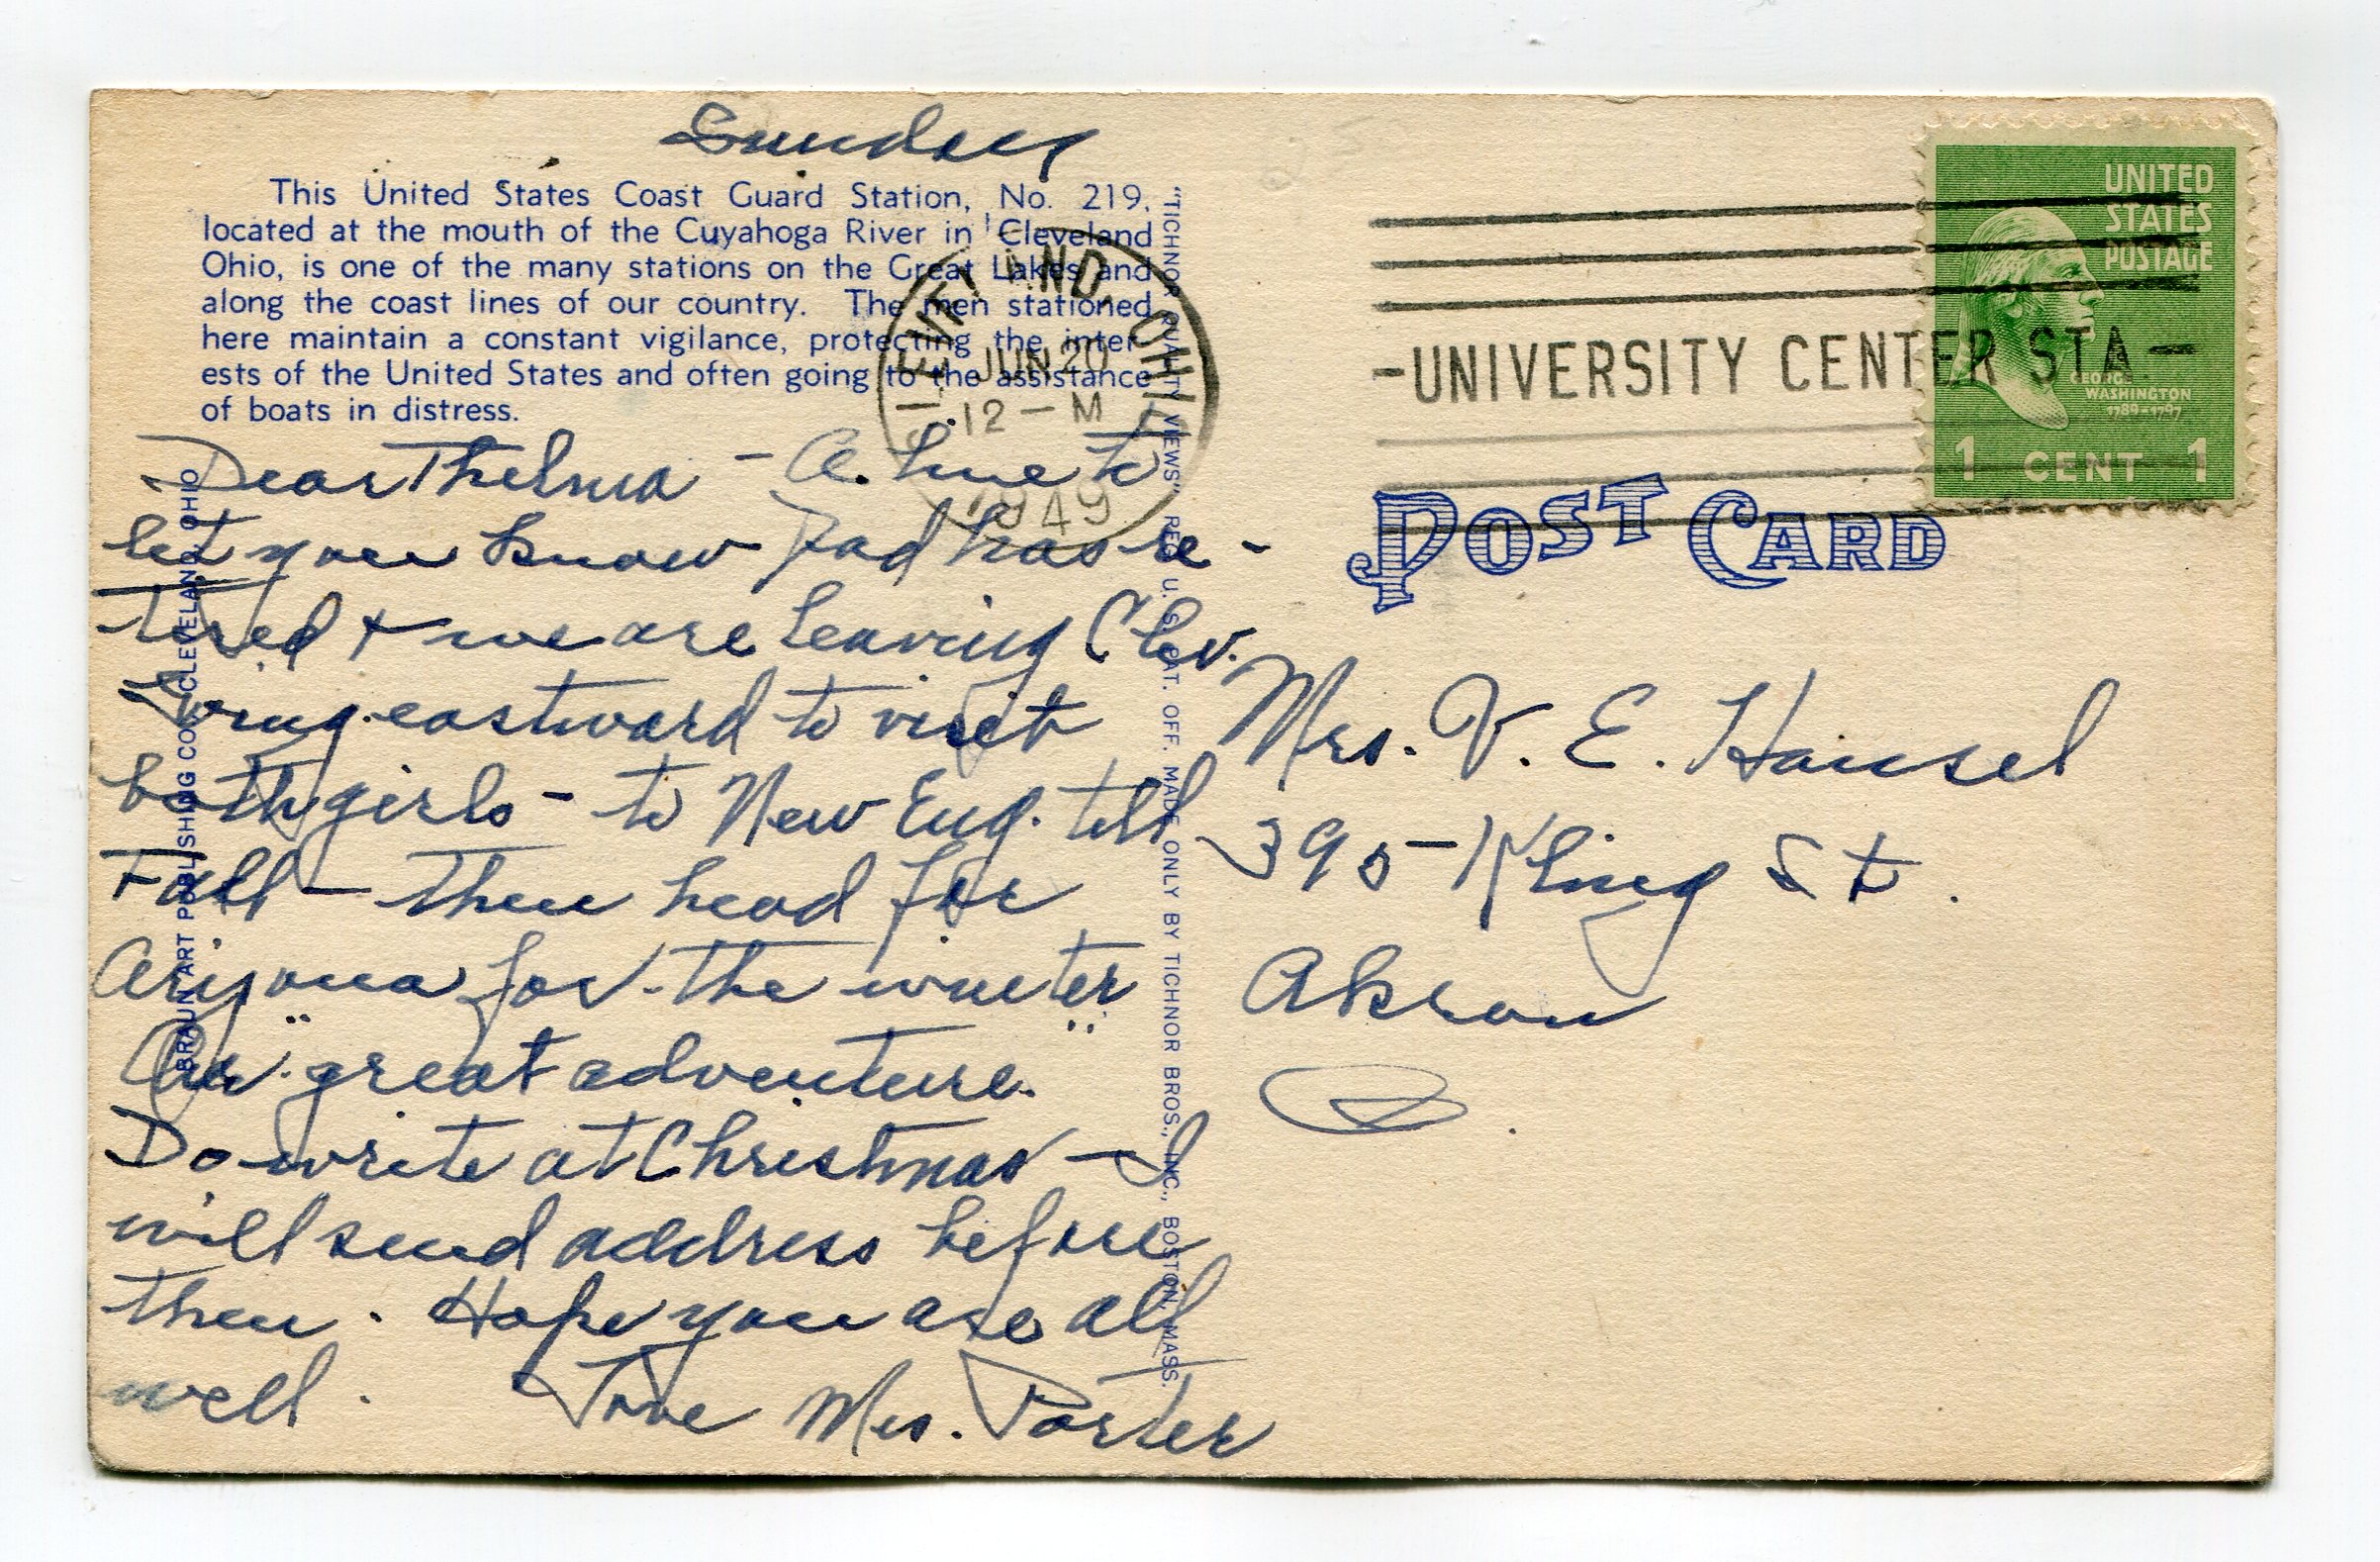 Sunday
This United States Coast Guard Station, No. 219,
located at the mouth of the Cuyahoga River in Cleveland
Ohio, is one of the many stations on the Great Lakes and
along the coast lines of our country. The men stationed
here maintain a constant vigilance, protecting the inter-
ests of the United States and often going to the assistance
of boats in distress.
Dear Thelma - A line to
let you know Pad has re-
tired & we are leaving Clev.
Going eastward to visit
both girls - to New Eng. till
Fall - then head for
Arizona for the winter
Our "great adventure."
Do write at Christmas - I
will send address before
then. Hope you are all
well. Love Mrs. Porter
BRAUN ART PUBLISHING CO., CLEVELAND, OHIO
"TICHNOR QUALITY VIEWS" REG. U. S. PAT. OFF. MADE ONLY BY TICHNOR BROS., INC., BOSTON, MASS.
CLEVELAND, OHIO
JUN 20
12 - M
1949
-UNIVERSITY CENTER STA-
UNITED
STATES
POSTAGE
GEORGE
WASHINGTON
1789-1797
1 CENT 1
POST CARD
Mrs. V. E. Hansel
395 Kling St.
Akron
O.